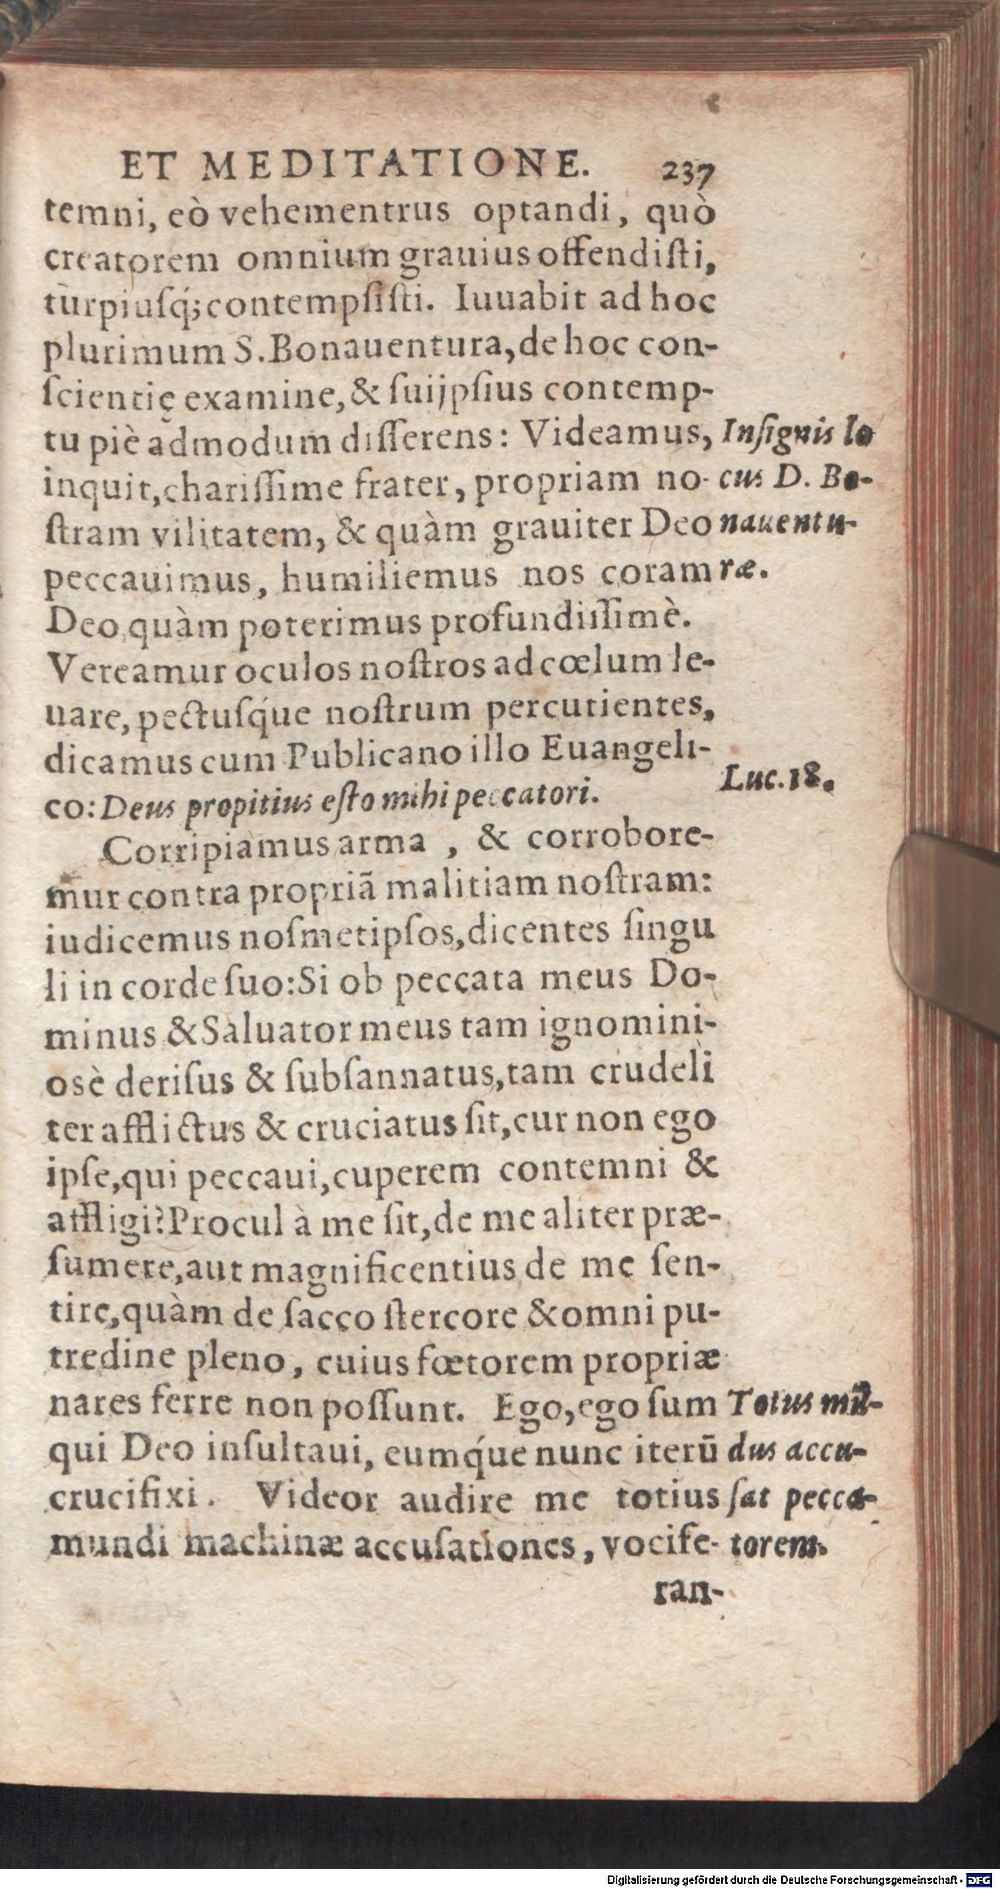 ET MEDITATIONE. 237
temni, eò vehementrus optandi, quò
creatorem omnium grauius offendiſti,
turpiuſq́;contempſiſti. Iuuabit ad hoc
plurimum S. Bonauentura, de hoc con-
ſcientię examine, & ſuijpſius contemp-
tu piè admodum diſſerens: Videamus,
inquit, chariſſime frater, propriam no-
ſtram vilitatem, & quàm grauiter Deo
peccauimus, humiliemus nos coram
Deo quàm poterimus profundiſſimè.
Vereamur oculos noſtros ad cœlum le-
uare, pectuſq́ue noſtrum percutientes,
dicamus cum Publicano illo Euangeli-
co: Deus propitius eſto mihi peccatori.
Corripiamus arma , & corrobore-
mur contra propriā malitiam noſtram:
iudicemus noſmetipſos, dicentes ſingu
li in corde ſuo: Si ob peccata meus Do-
minus & Saluator meus tam ignomini-
osè deriſus & ſubſannatus, tam crudeli
ter afflictus & cruciatus ſit, cur non ego
ipſe, qui peccaui, cuperem contemni &
affligi? Procul à me ſit, de me aliter præ-
ſumere, aut magnificentius de me ſen-
tire, quàm de ſacco ſtercore & omni pu-
tredine pleno, cuius fœtorem propriæ
nares ferre non poſſunt. Ego, ego ſum
qui Deo inſultaui, eumq́ue nunc iterū
crucifixi. Videor audire me totius
mundi machinæ accuſationes, vocife-
ran-
Inſignis lo
cus D. Bo-
nauentu-
ræ.
Luc. 18.
Totus mū-
dus accu-
ſat pecca-
torem.
Digitalisierung gefördert durch die Deutsche Forschungsgemeinschaft - DFG